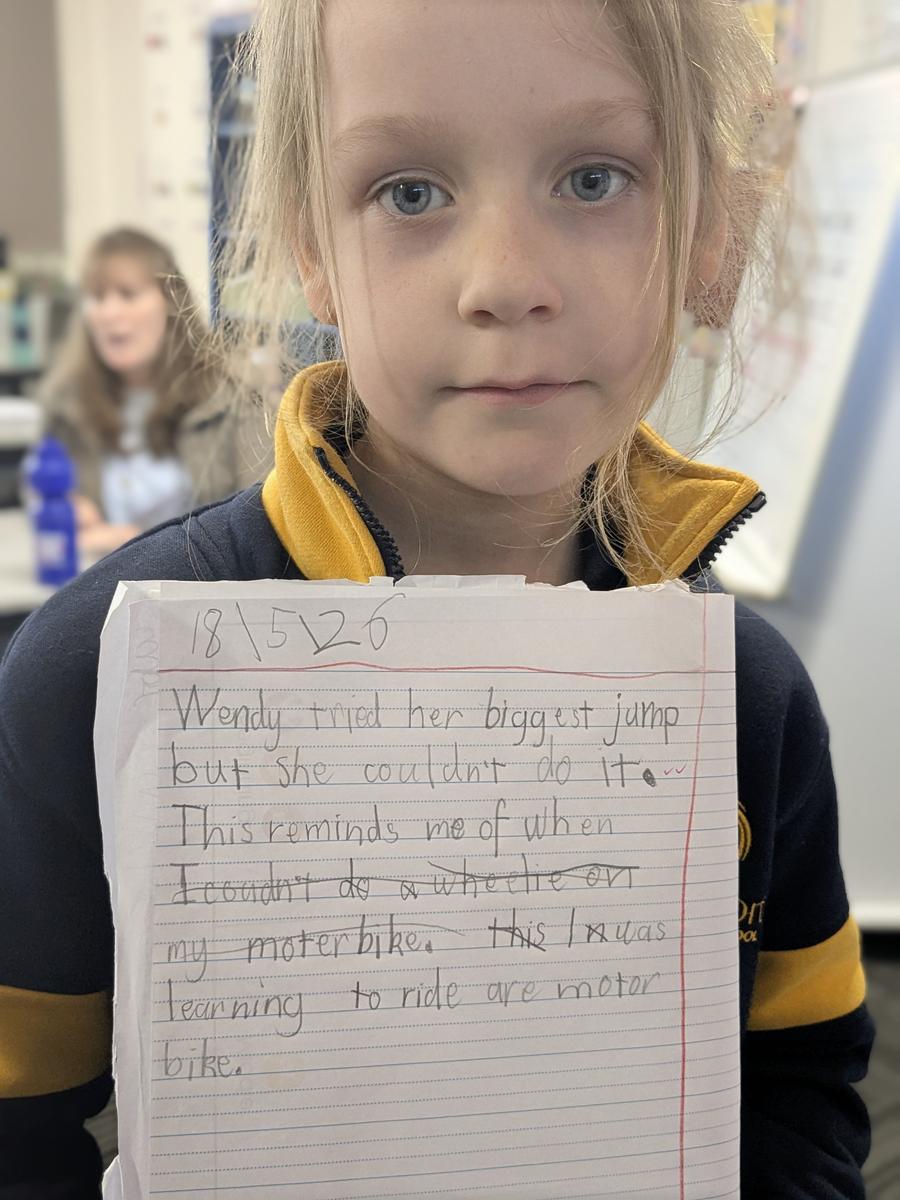 18\5\26
Wendy tried her biggest jump
but she couldn't do it.
This reminds me of when
I coudn't do a wheelie on
my moterbike. this I was
learning to ride are motor
bike.